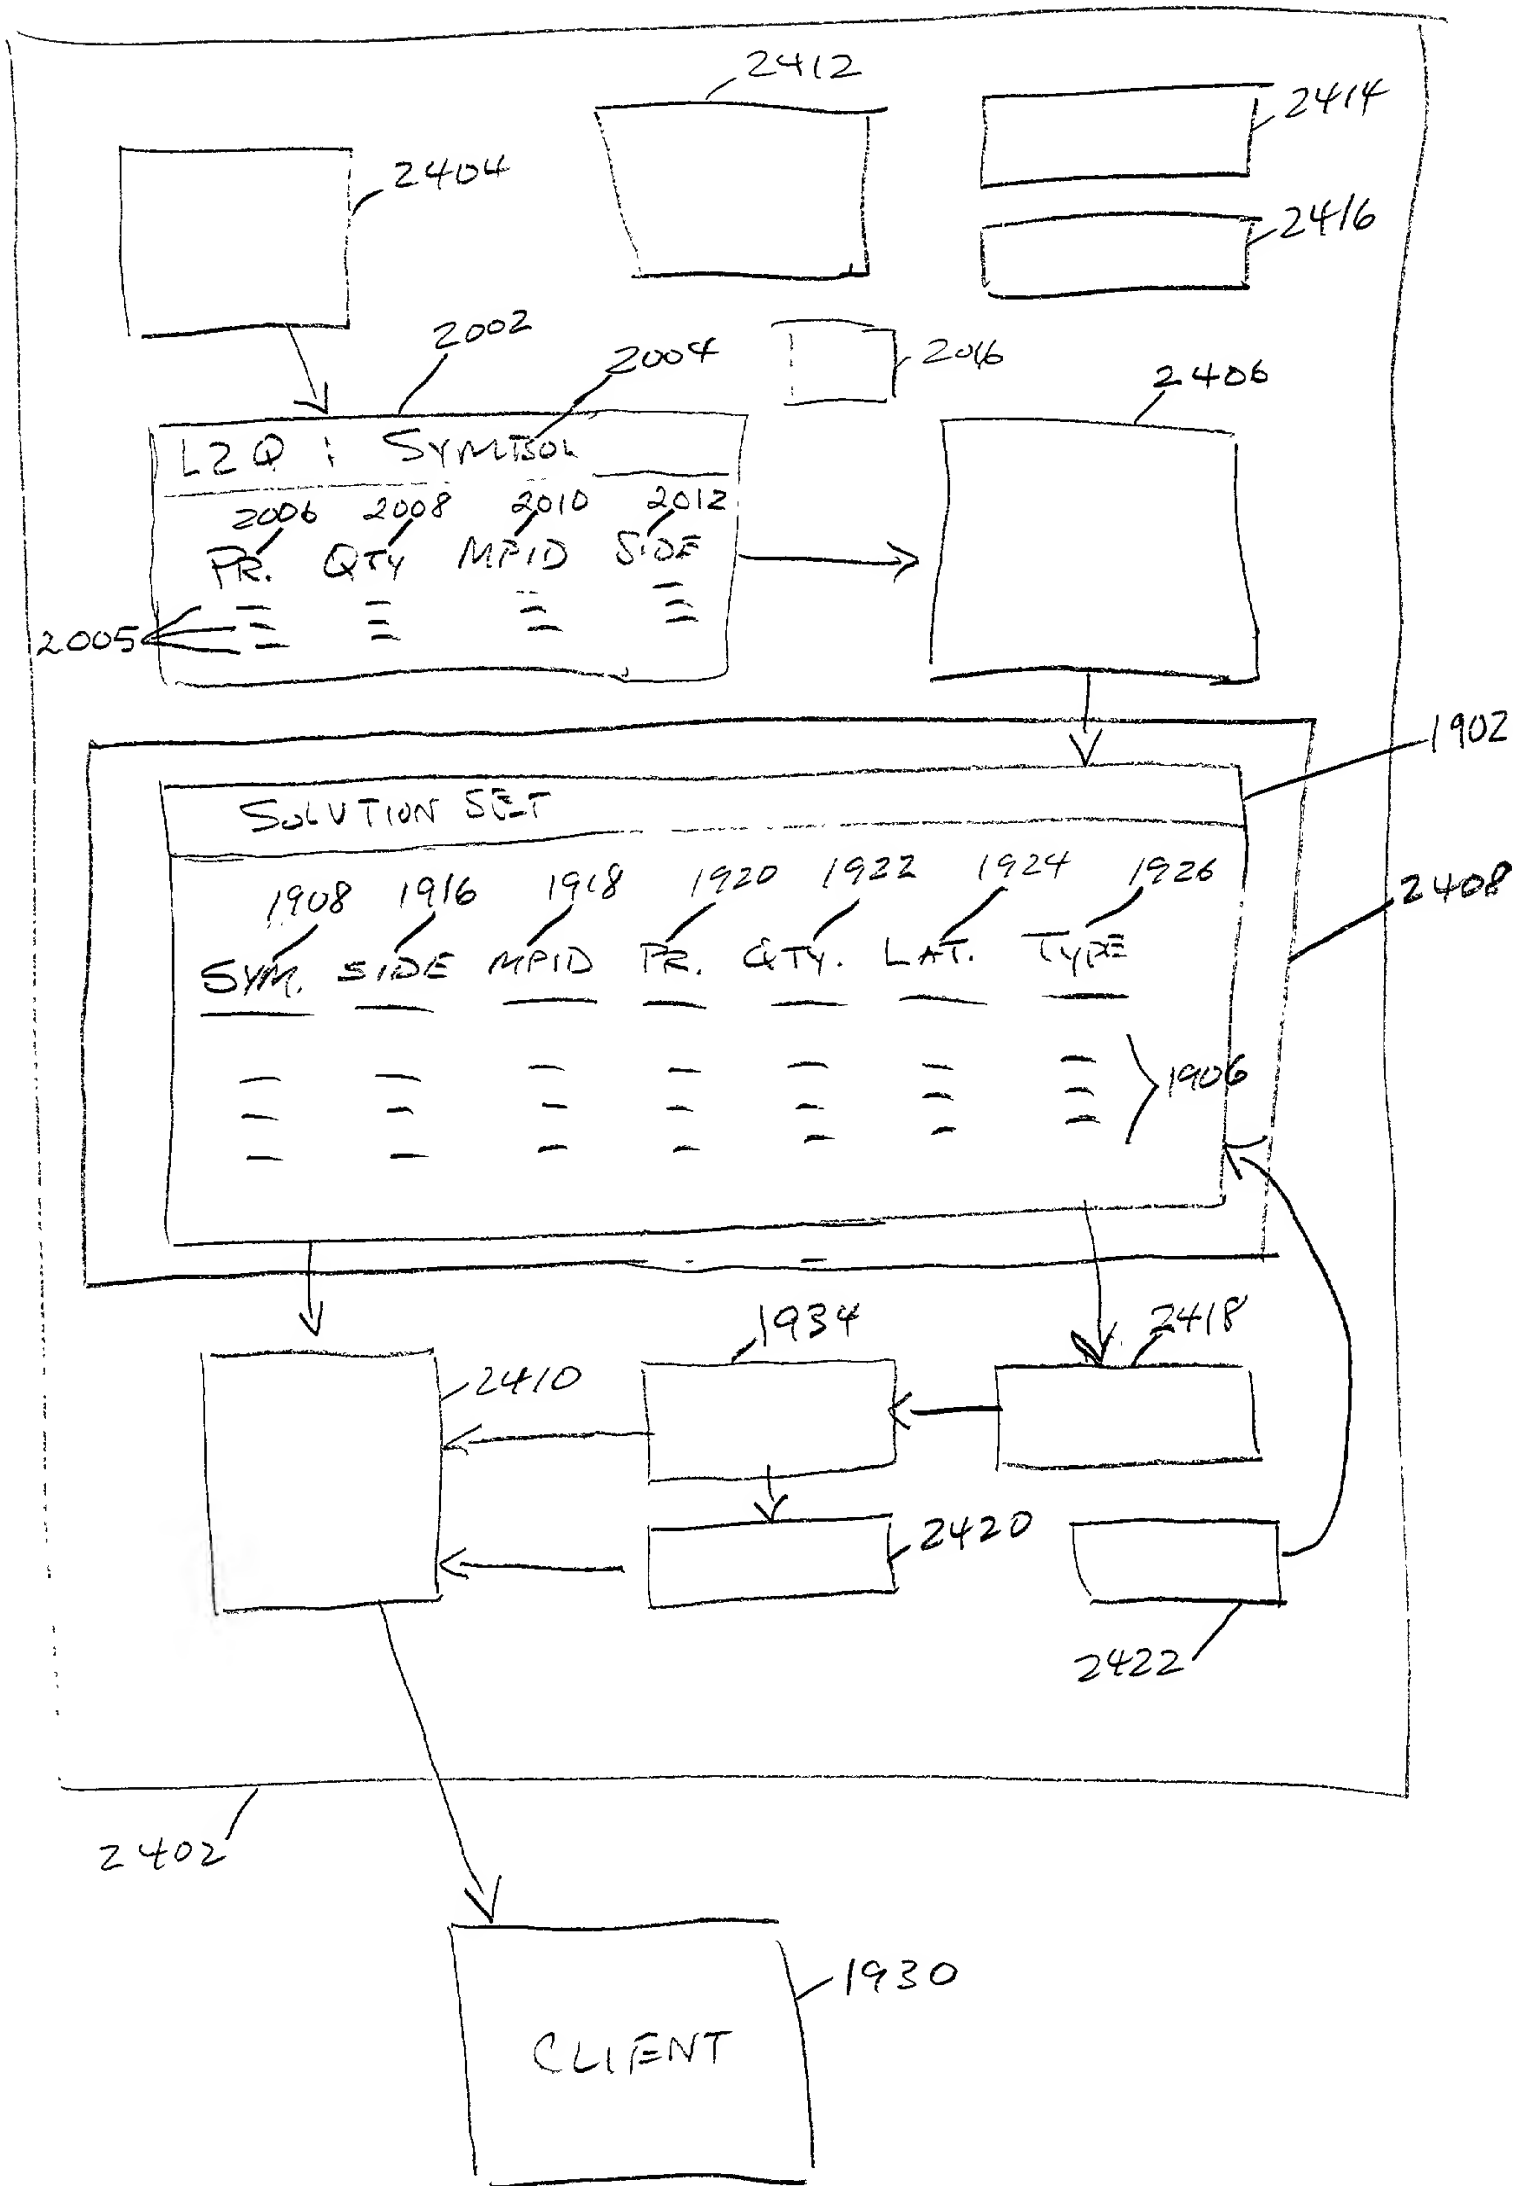 2412
2414
2404
2416
2002
2004
2016
2406
L2Q : SYMBOL
2006 2008 2010 2012
PR. QTY MPID SIDE
2005
1902
SOLUTION SET
1908 1916 1918 1920 1922 1924 1926
2408
SYM. SIDE MPID PR. QTY. LAT. TYPE
1906
1934
2418
2410
2420
2422
2402
1930
CLIENT